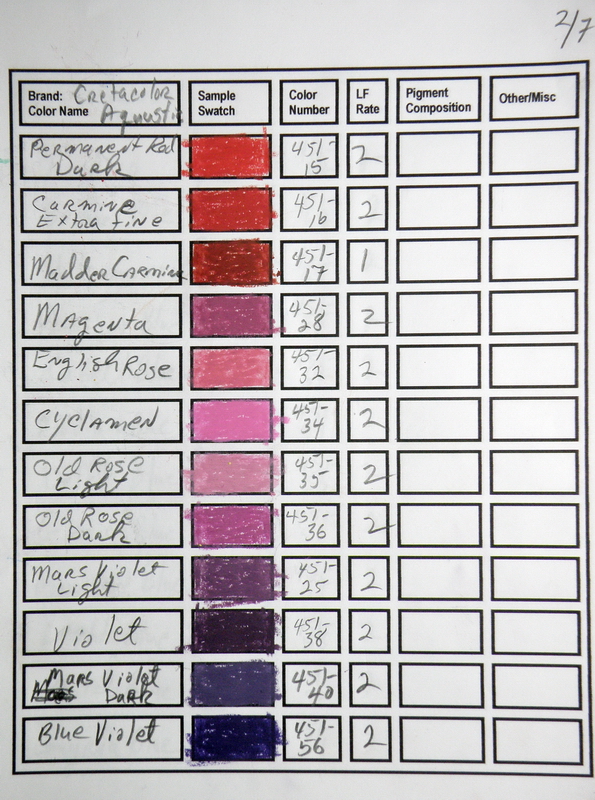 2/7
Brand: Cretacolor
Color Name Aqustic
Sample
Swatch
Color
Number
LF
Rate
Pigment
Composition
Other/Misc
Permanent Red
Dark
451-
15
2
Carmine
Extra fine
451-
16
2
Madder Carmine
451-
17
1
Magenta
451-
28
2
English Rose
451-
32
2
Cyclamen
451-
34
2
Old Rose
Light
451-
35
2
Old Rose
Dark
451-
36
2
Mars Violet
Light
451-
25
2
Violet
451-
38
2
Mars Violet
Dark
451-
40
2
Blue Violet
451-
56
2